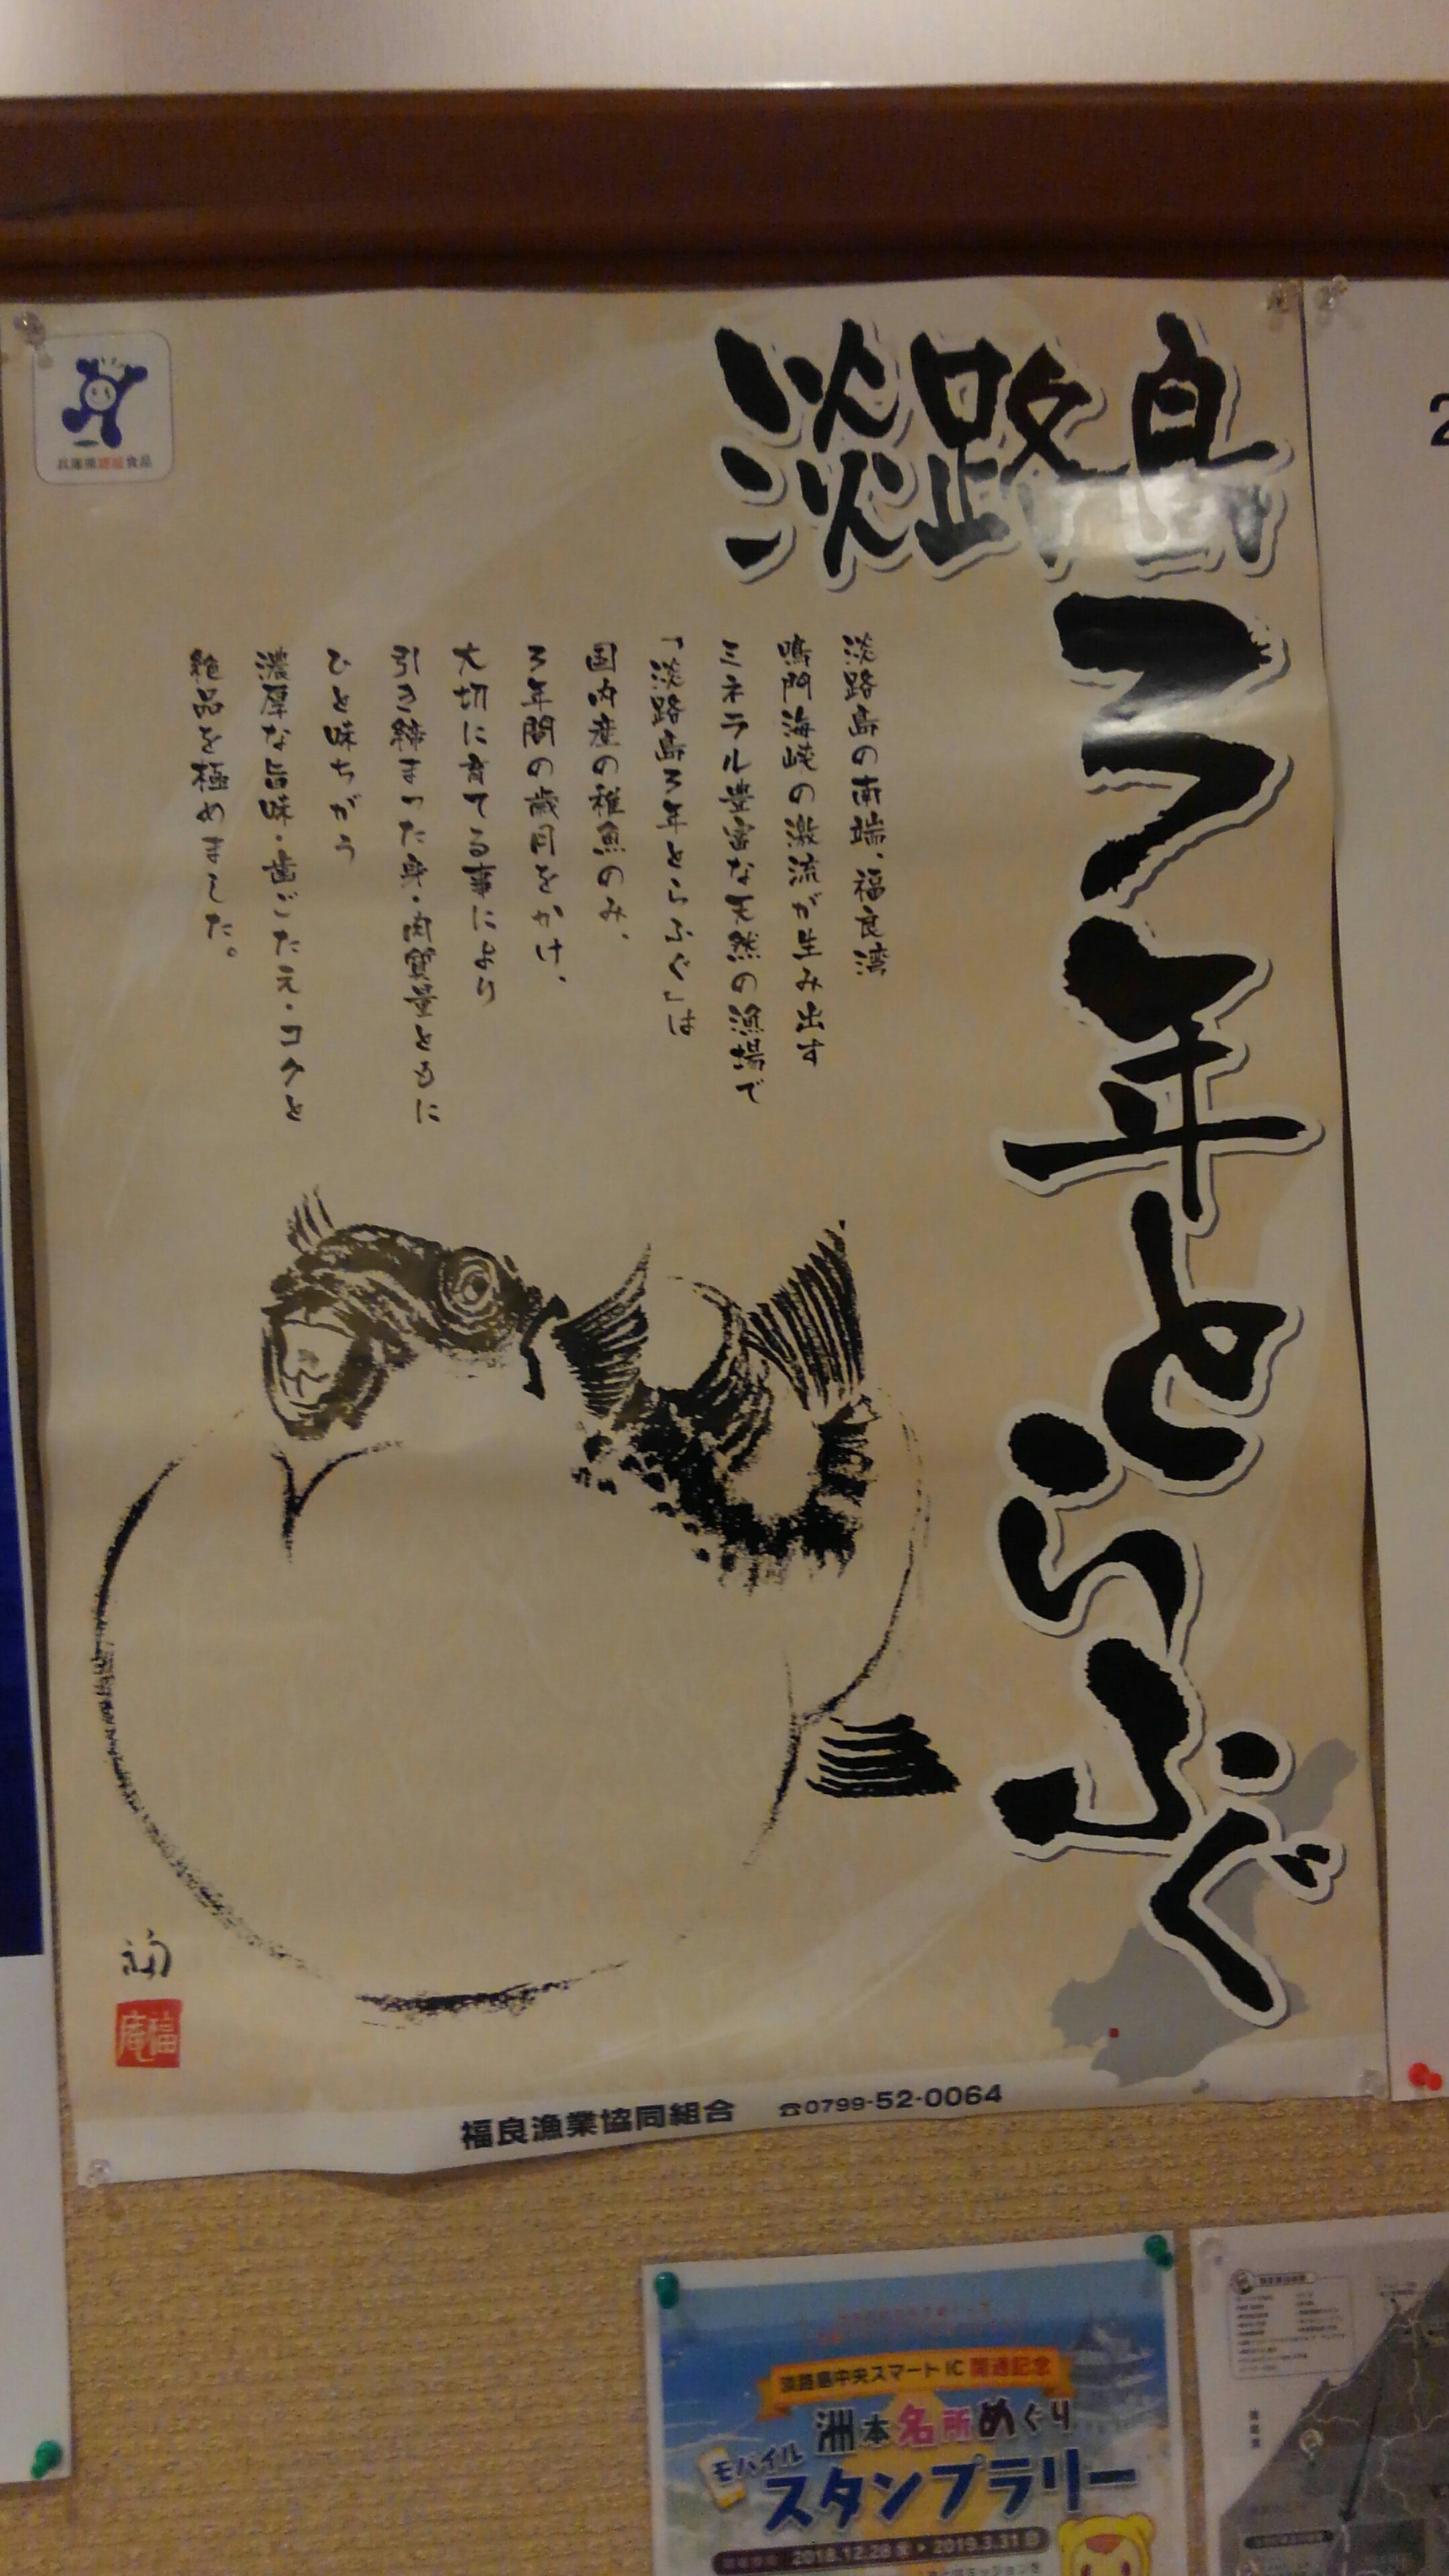 淡路島
3年とらふぐ
淡路島の南端、福良湾
鳴門海峡の激流が生み出す
ミネラル豊富な天然の漁場で
「淡路島3年とらふぐ」は
国内産の稚魚のみ、
3年間の歳月をかけ、
大切に育てる事により
引き締まった身・肉質量ともに
ひと味ちがう
濃厚な旨味・歯ごたえ・コクと
絶品を極めました。
兵庫県認証食品
福
福庵
福良漁業協同組合 ☎0799-52-0064
2
淡路島中央スマートIC 開通記念
洲本名所めぐり
モバイル
スタンプラリー
2018.12.28 2019.3.31